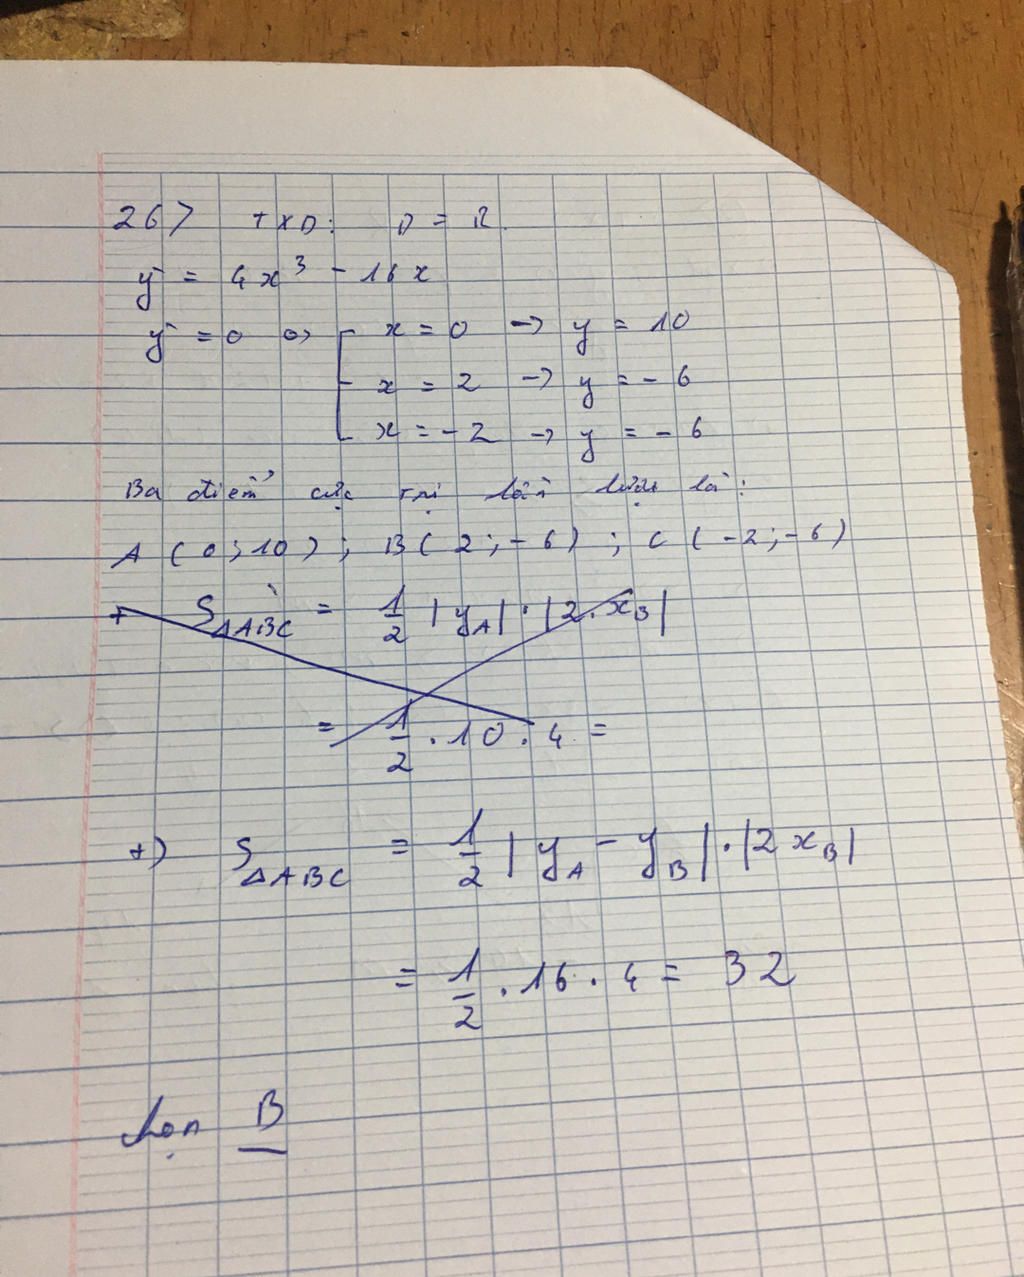 26> TXD: D = R.
y' = 4x³ - 16x
y' = 0 <=> [ x = 0 -> y = 10
x = 2 -> y = -6
x = -2 -> y = -6
Ba điểm cực trị lần lượt là:
A (0; 10); B (2; -6); C (-2; -6)
+ S△ABC = 1/2 |yA| . |2.xB|
= 1/2 . 10 . 4 =
+) S△ABC = 1/2 |yA - yB| . |2xB|
= 1/2 . 16 . 4 = 32
chọn B